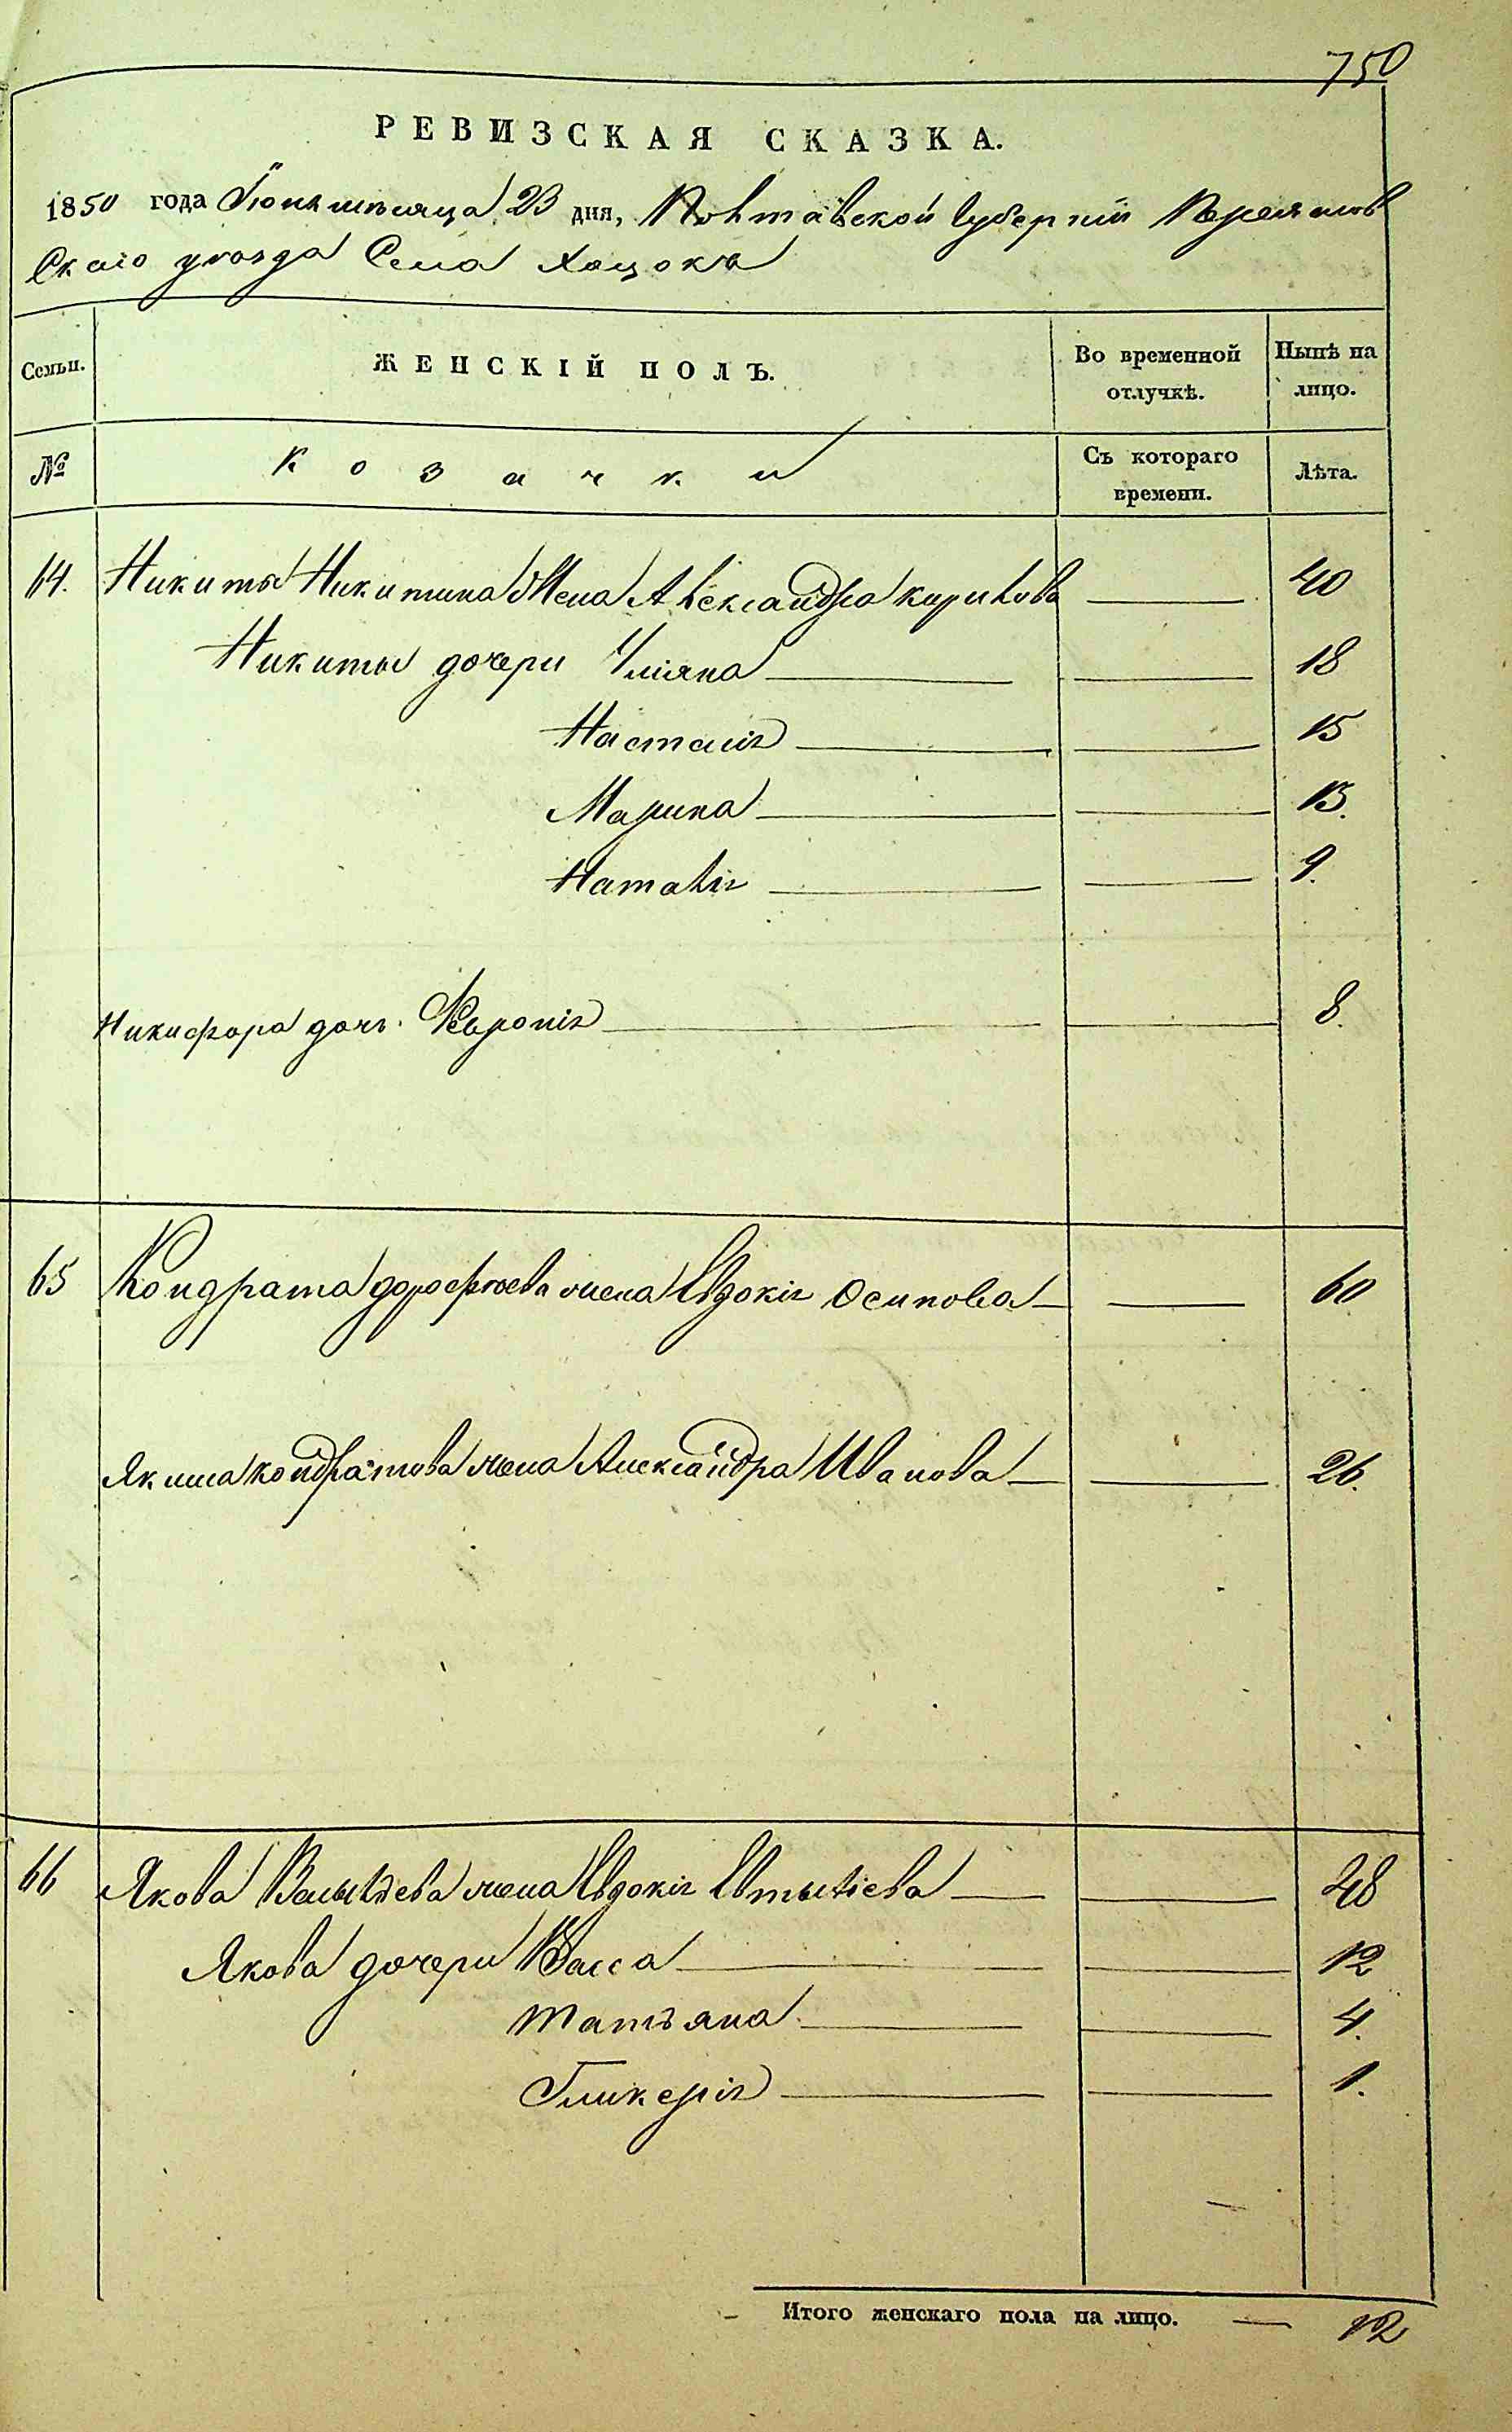 750
РЕВИЗСКАЯ СКАЗКА.
1850 года Іюня месяца 23 дня, Полтавской Губерніи Переяслов
Скаго уезда Села Хоцокъ
Семьи. ЖЕНСКІЙ ПОЛЪ. Во временной отлучкѣ. Нынѣ на лицо.
№ Козачки Съ котораго времени. Лѣта.
64. Никиты Никитина Жена Александра Кирилова 40
Никиты дочери Уліяна 18
Настасія 15
Марина 13.
Наталія 9.
Никифора дочь. Феронія 8.
65 Кондрата дорофѣева жена Евдокія Осипова 60
Якима кондратова жена Александра Иванова 26.
66 Якова Васильева жена Евдокія 28
Якова дочери Васса 12
Татьяна 4.
Гликерія 1.
Итого женскаго пола на лицо. — 12